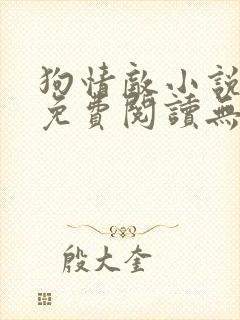 狗情敵小說
免費閱讀無
殷大奎